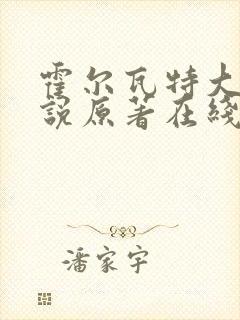 霍尔瓦特大
說原著在綫
潘家宇